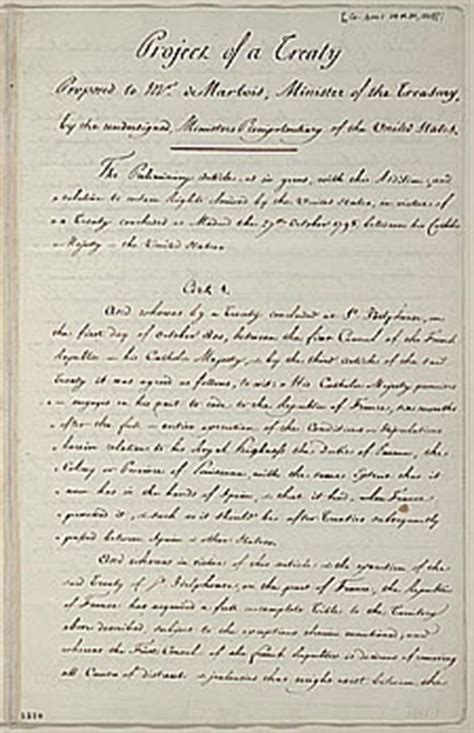 Project of a Treaty
Proposed to Mr. de Marbois, Minister of the Treasury,
by the undersigned, Ministers Plenipotentiary of the United States.
The Preliminary Articles as in great, with this Addition, and
a relation to certain Rights claimed by the United States, in virtue of
a Treaty concluded at Madrid the 27th October 1795, between his Catholic
Majesty & the United States.
Art 1.
And whereas by a Treaty concluded at St. Ildephonso, on
the first day of October 800, between the first Consul of the French
Republic & his Catholic Majesty, & by the third article of the said
Treaty it was agreed as follows, to wit: His Catholic Majesty promises
& engages on his part to cede to the Republic of France, six months
after the full & entire execution of the Conditions & Stipulations
herein relative to his Royal Highness the Duke of Parma, the
Colony or Province of Louisiana, with the same Extent that it
now has in the hands of Spain, & that it had, when France
possessed it, & such as it should be after Treaties subsequently
passed between Spain & other States.
And whereas in virtue of this article & the execution of the
said Treaty of St. Ildephonso, on the part of France, the Republic
of France has acquired a full & complete Title to the Territory
above described, subject to the exceptions therein mentioned, and
whereas the First Consul of the French Republic is desirous of removing
all Cause of distrust & jealousies that might exist between the